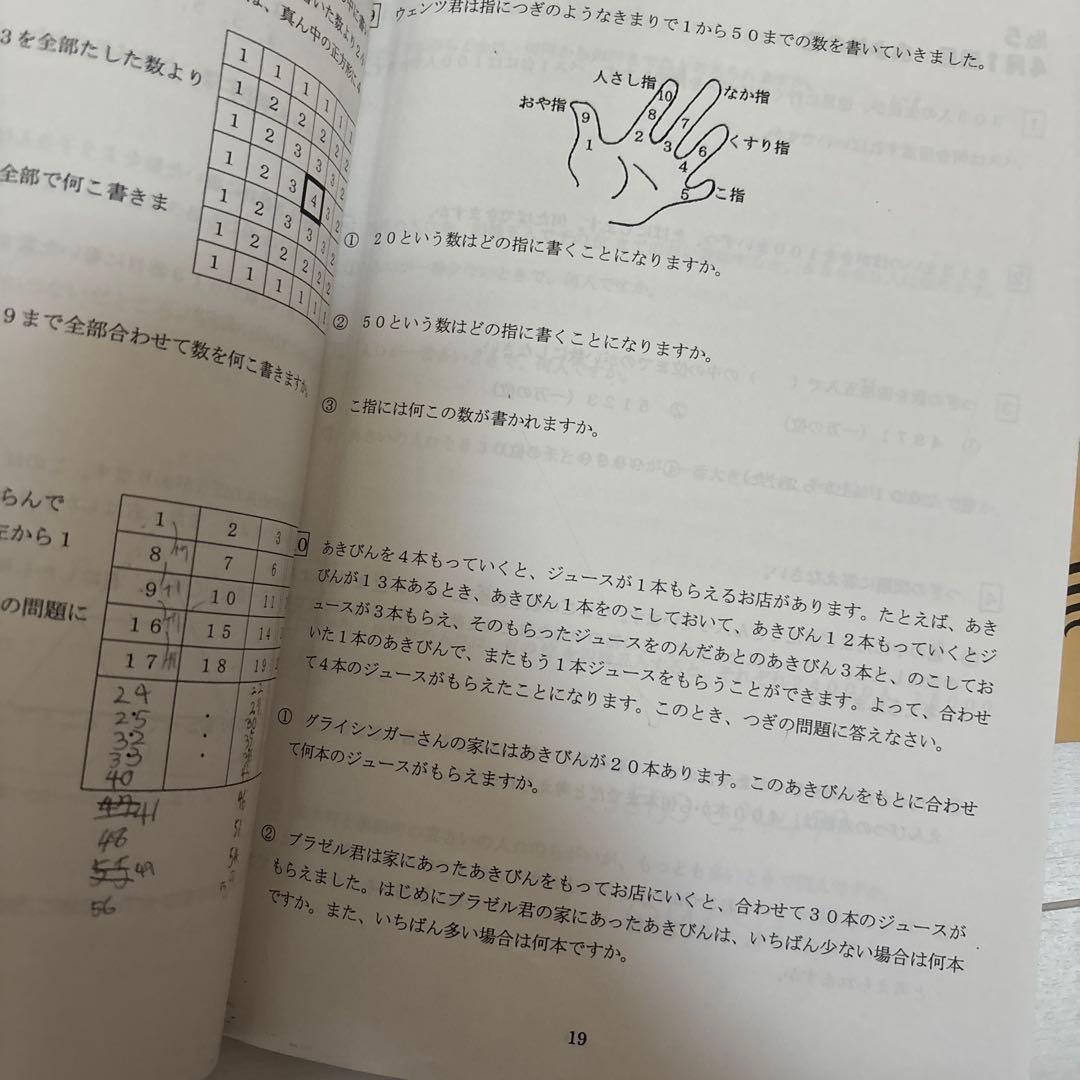 3を全部たした数より
全部で何こ書きま
9まで全部合わせて数を何こ書きますか。
らんで
左から1
の問題に
真ん中の正方形に4
1 1 1 1 1 1
1 2 2 2 2 2
1 2 3 3 3 2
1 2 3 4 3 2
1 2 3 3 3 2
1 2 2 2 2 2
1 1 1 1 1 1
1 2 3
8 7 6
9 10 11
16 15 14
17 18 19
24
25
32
33
40
41
48
49
56
9 ウェンツ君は指につぎのようなきまりで1から50までの数を書いていきました。
おや指
人さし指
なか指
くすり指
こ指
9 1
10 8 2
3 7
6 4
5
① 20という数はどの指に書くことになりますか。
② 50という数はどの指に書くことになりますか。
③ こ指には何この数が書かれますか。
0 あきびんを4本もっていくと、ジュースが1本もらえるお店があります。たとえば、あき
びんが13本あるとき、あきびん1本をのこしておいて、あきびん12本もっていくとジ
ュースが3本もらえ、そのもらったジュースをのんだあとのあきびん3本と、のこしてお
いた1本のあきびんで、またもう1本ジュースをもらうことができます。よって、合わせ
て4本のジュースがもらえたことになります。このとき、つぎの問題に答えなさい。
① グライシンガーさんの家にはあきびんが20本あります。このあきびんをもとに合わせ
て何本のジュースがもらえますか。
② ブラゼル君は家にあったあきびんをもってお店にいくと、合わせて30本のジュースが
もらえました。はじめにブラゼル君の家にあったあきびんは、いちばん少ない場合は何本
ですか。また、いちばん多い場合は何本ですか。
19